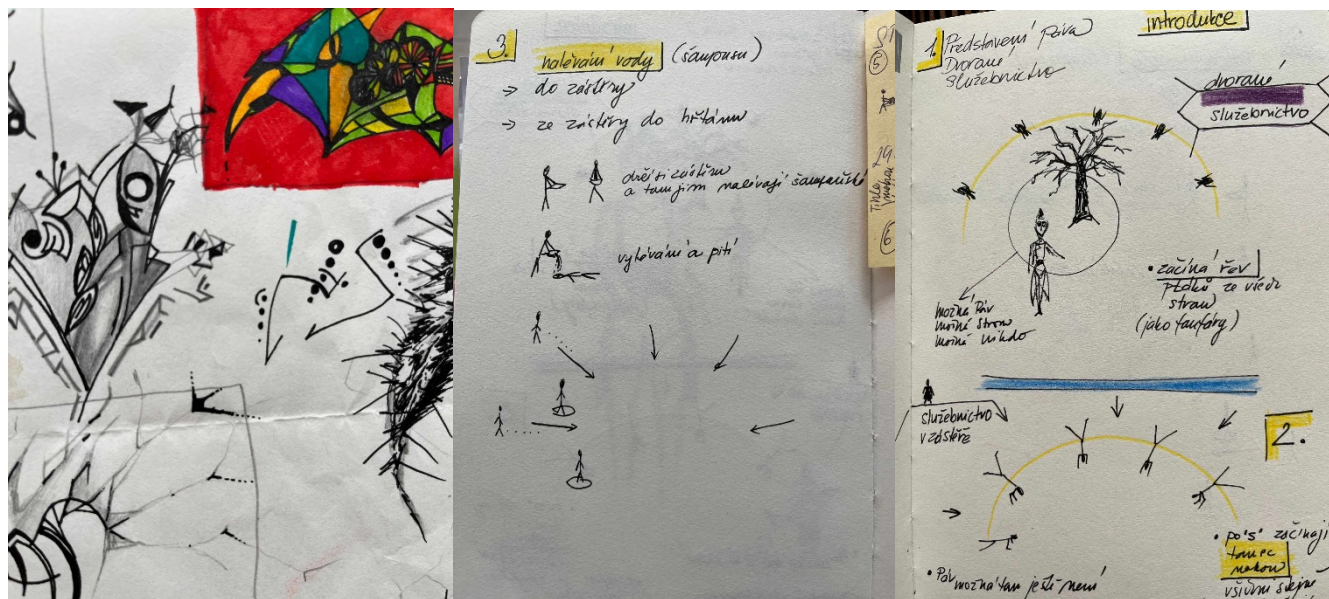 3.
nalévání vody (šampusu)
→ do zástěry
→ ze zástěry do hřtánu
drží si zástěru
a tam jim nalévají šampaňské
vylévání a pití
5
29.
Tihle
mohou
6
introdukce
1. Představení páva
Dvorané
Služebnictvo
dvorané
služebnictvo
• začíná řev
ptáků ze všech
stran
(jako fanfáry)
možná Páv
možná strom
možná nikdo
služebnictvo
v zástěře
2.
• po "5" začínají
tanec
nohou
všichni stejně
• Páv možná tam ještě není